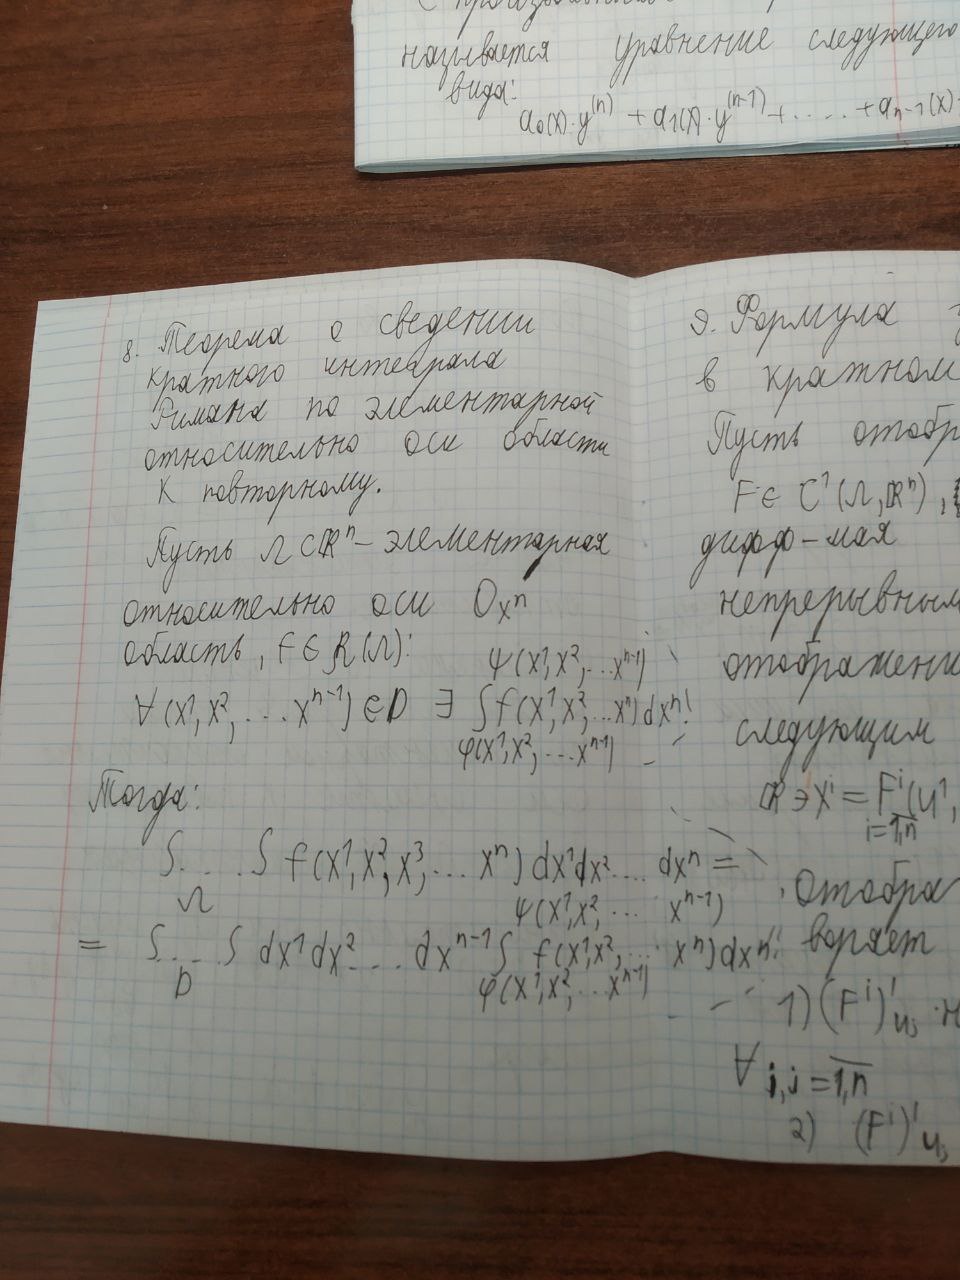 называется уравнение следующего
вида:
a₀(x)·y⁽ⁿ⁾ + a₁(x)·y⁽ⁿ⁻¹⁾ + ..... + aₙ₋₁(x)·
8. Теорема о сведении
кратного интеграла
Римана по элементарной
относительно оси области
к повторному.
Пусть Ω⊂ℝⁿ – элементарная
относительно оси Oxⁿ
область, f∈R(Ω):
ψ(x¹,x²,...xⁿ⁻¹)
∀(x¹,x²,...xⁿ⁻¹)∈D ∃ ∫f(x¹,x²,...xⁿ)dxⁿ!
φ(x¹,x²,...xⁿ⁻¹)
Тогда:
∫....∫ f(x¹,x²,x³,...xⁿ)dx¹dx²....dxⁿ =
Ω
ψ(x¹,x²,...xⁿ⁻¹)
= ∫....∫ dx¹dx²...dxⁿ⁻¹∫ f(x¹,x²,...xⁿ)dxⁿ!
D
φ(x¹,x²,...xⁿ⁻¹)
9. Формула
в кратном
Пусть отобр
F∈C¹(Ω,ℝⁿ),
дифф-мая
непрерывным
отображени
следующим
ℝ∋xⁱ = Fⁱ(u¹,
i=1,n
Отобра
воряет
1) (Fⁱ)'
∀i,j = 1,n
2) (Fⁱ)'